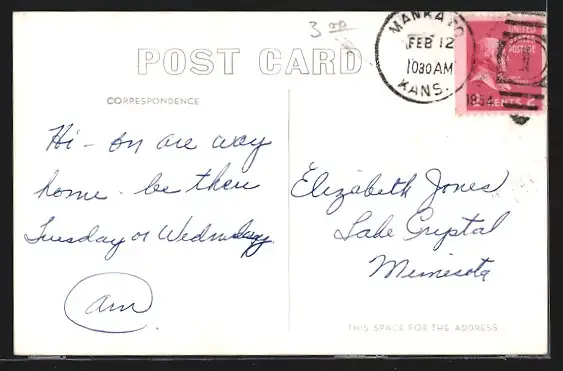 3 00
POST CARD
MANKATO
FEB 12
1030 AM
1954
KANS.
UNITED
POSTAGE
CENTS 2
CORRESPONDENCE
Hi - on are way
home - be there
Tuesday or Wednesday.
am
Elizabeth Jones
Lake Crystal
Minnesota
THIS SPACE FOR THE ADDRESS